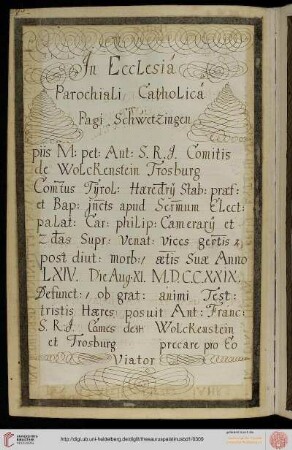 In Ecclesiá
Parochiali Catholicá
Pagi Schwetzingen
piis M: pet: Ant: S. R. I. Comitis
de Wolckenstein Trosburg
Comitus Tyrol: Haredrÿ Stab: præf:
et Bap: jncts apud Sermum Elect:
palat: Car: philip: Camerarÿ et
Supr: Venat: vices gertis &,
post diut: morb:/ ætis Suæ Anno
LXIV. Die Aug: XI. M.D.C.C.XXIX.
Defunct:/ ob grat: animi Test:
tristis Hæres posuit Ant: Franc:
S. R. I. Comes de Wolckenstein
et Trosburg precare pro Eo
Viator
http://digi.ub.uni-heidelberg.de/diglit/